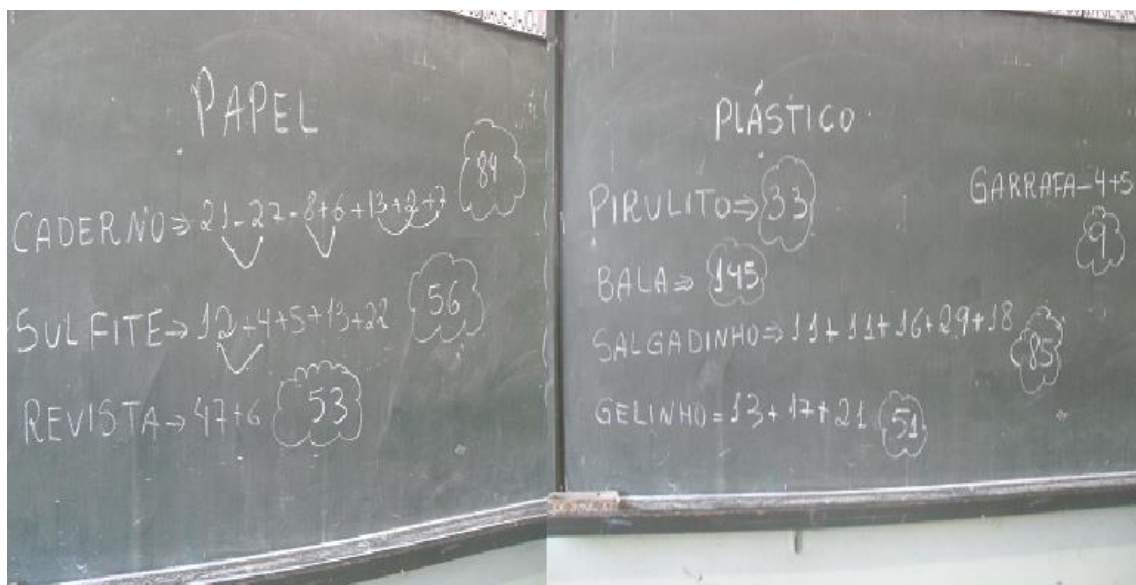 PAPEL
CADERNO ⇒ 21-27-8+6+13+2+7 84
SULFITE → 12+4+5+13+22 56
REVISTA → 47+6 53
PLÁSTICO
GARRAFA-4+5 9
PIRULITO ⇒ 33
BALA ⇒ 145
SALGADINHO ⇒ 11+11+16+29+18 85
GELINHO = 13+17+21 51